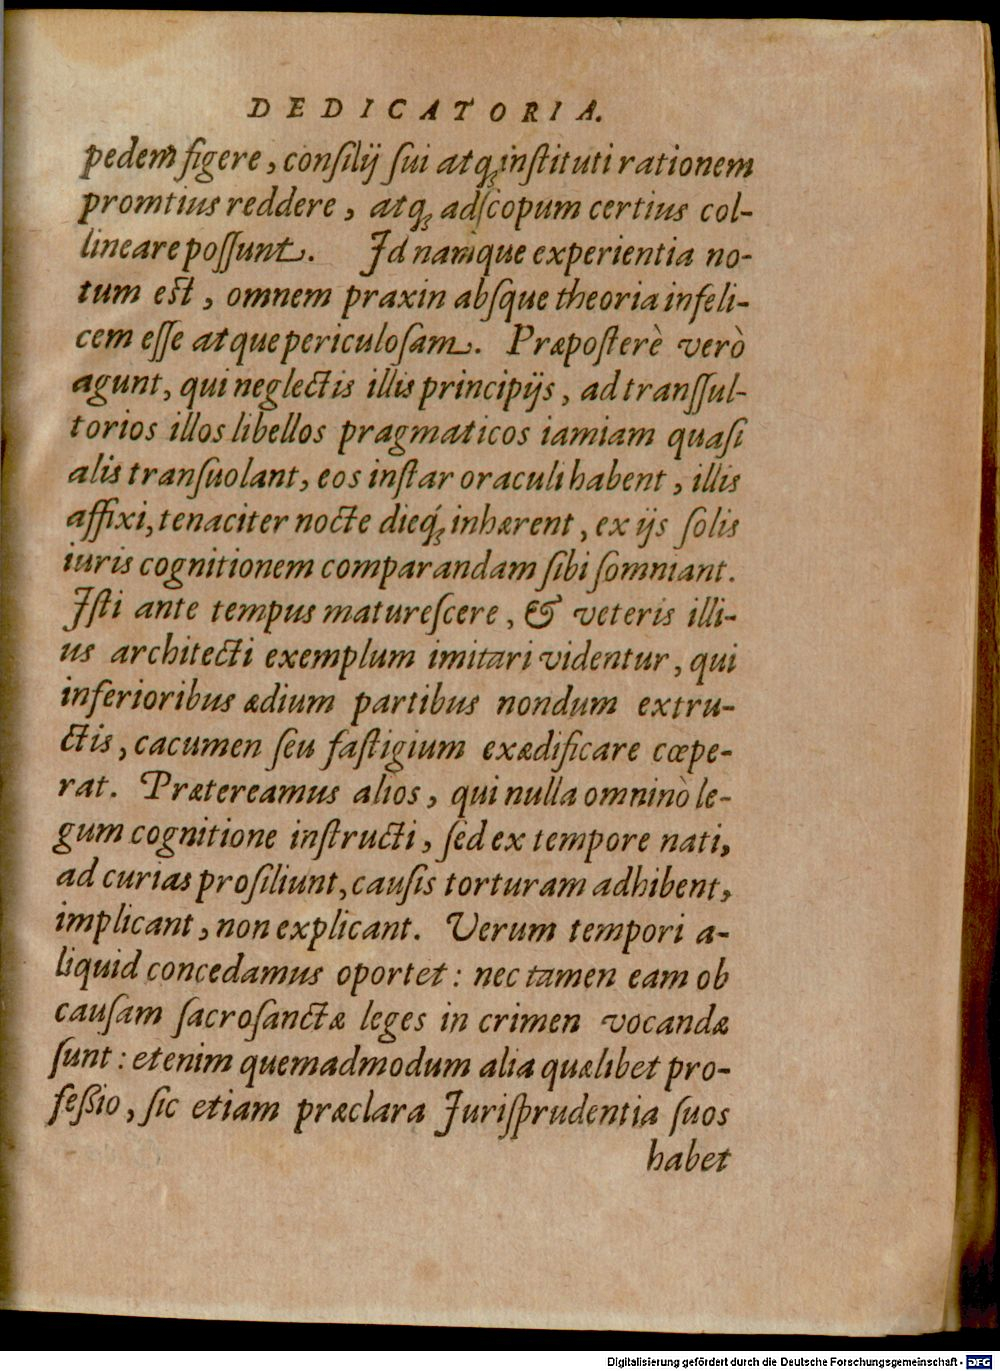 DEDICATORIA.
pedem figere, conſilij ſui atq́ꝫ inſtituti rationem
promtius reddere, atqꝫ ad ſcopum certius col-
lineare poſſunt. Id namque experientia no-
tum eſt, omnem praxin abſque theoria infeli-
cem eſſe atque periculoſam. Præpoſterè verò
agunt, qui neglectis illis principijs, ad tranſſul-
torios illos libellos pragmaticos iamiam quaſi
alis tranſuolant, eos inſtar oraculi habent, illis
affixi, tenaciter nocte dieq́ꝫ inhærent, ex ijs ſolis
iuris cognitionem comparandam ſibi ſomniant.
Iſti ante tempus matureſcere, & veteris illi-
us architecti exemplum imitari videntur, qui
inferioribus ædium partibus nondum extru-
ctis, cacumen ſeu faſtigium exædificare cœpe-
rat. Prætereamus alios, qui nulla omninò le-
gum cognitione inſtructi, ſed ex tempore nati,
ad curias proſiliunt, cauſis torturam adhibent,
implicant, non explicant. Verum tempori a-
liquid concedamus oportet: nec tamen eam ob
cauſam ſacroſanctæ leges in crimen vocandæ
ſunt: etenim quemadmodum alia quælibet pro-
feßio, ſic etiam præclara Juriſprudentia ſuos
habet
Digitalisierung gefördert durch die Deutsche Forschungsgemeinschaft - DFG